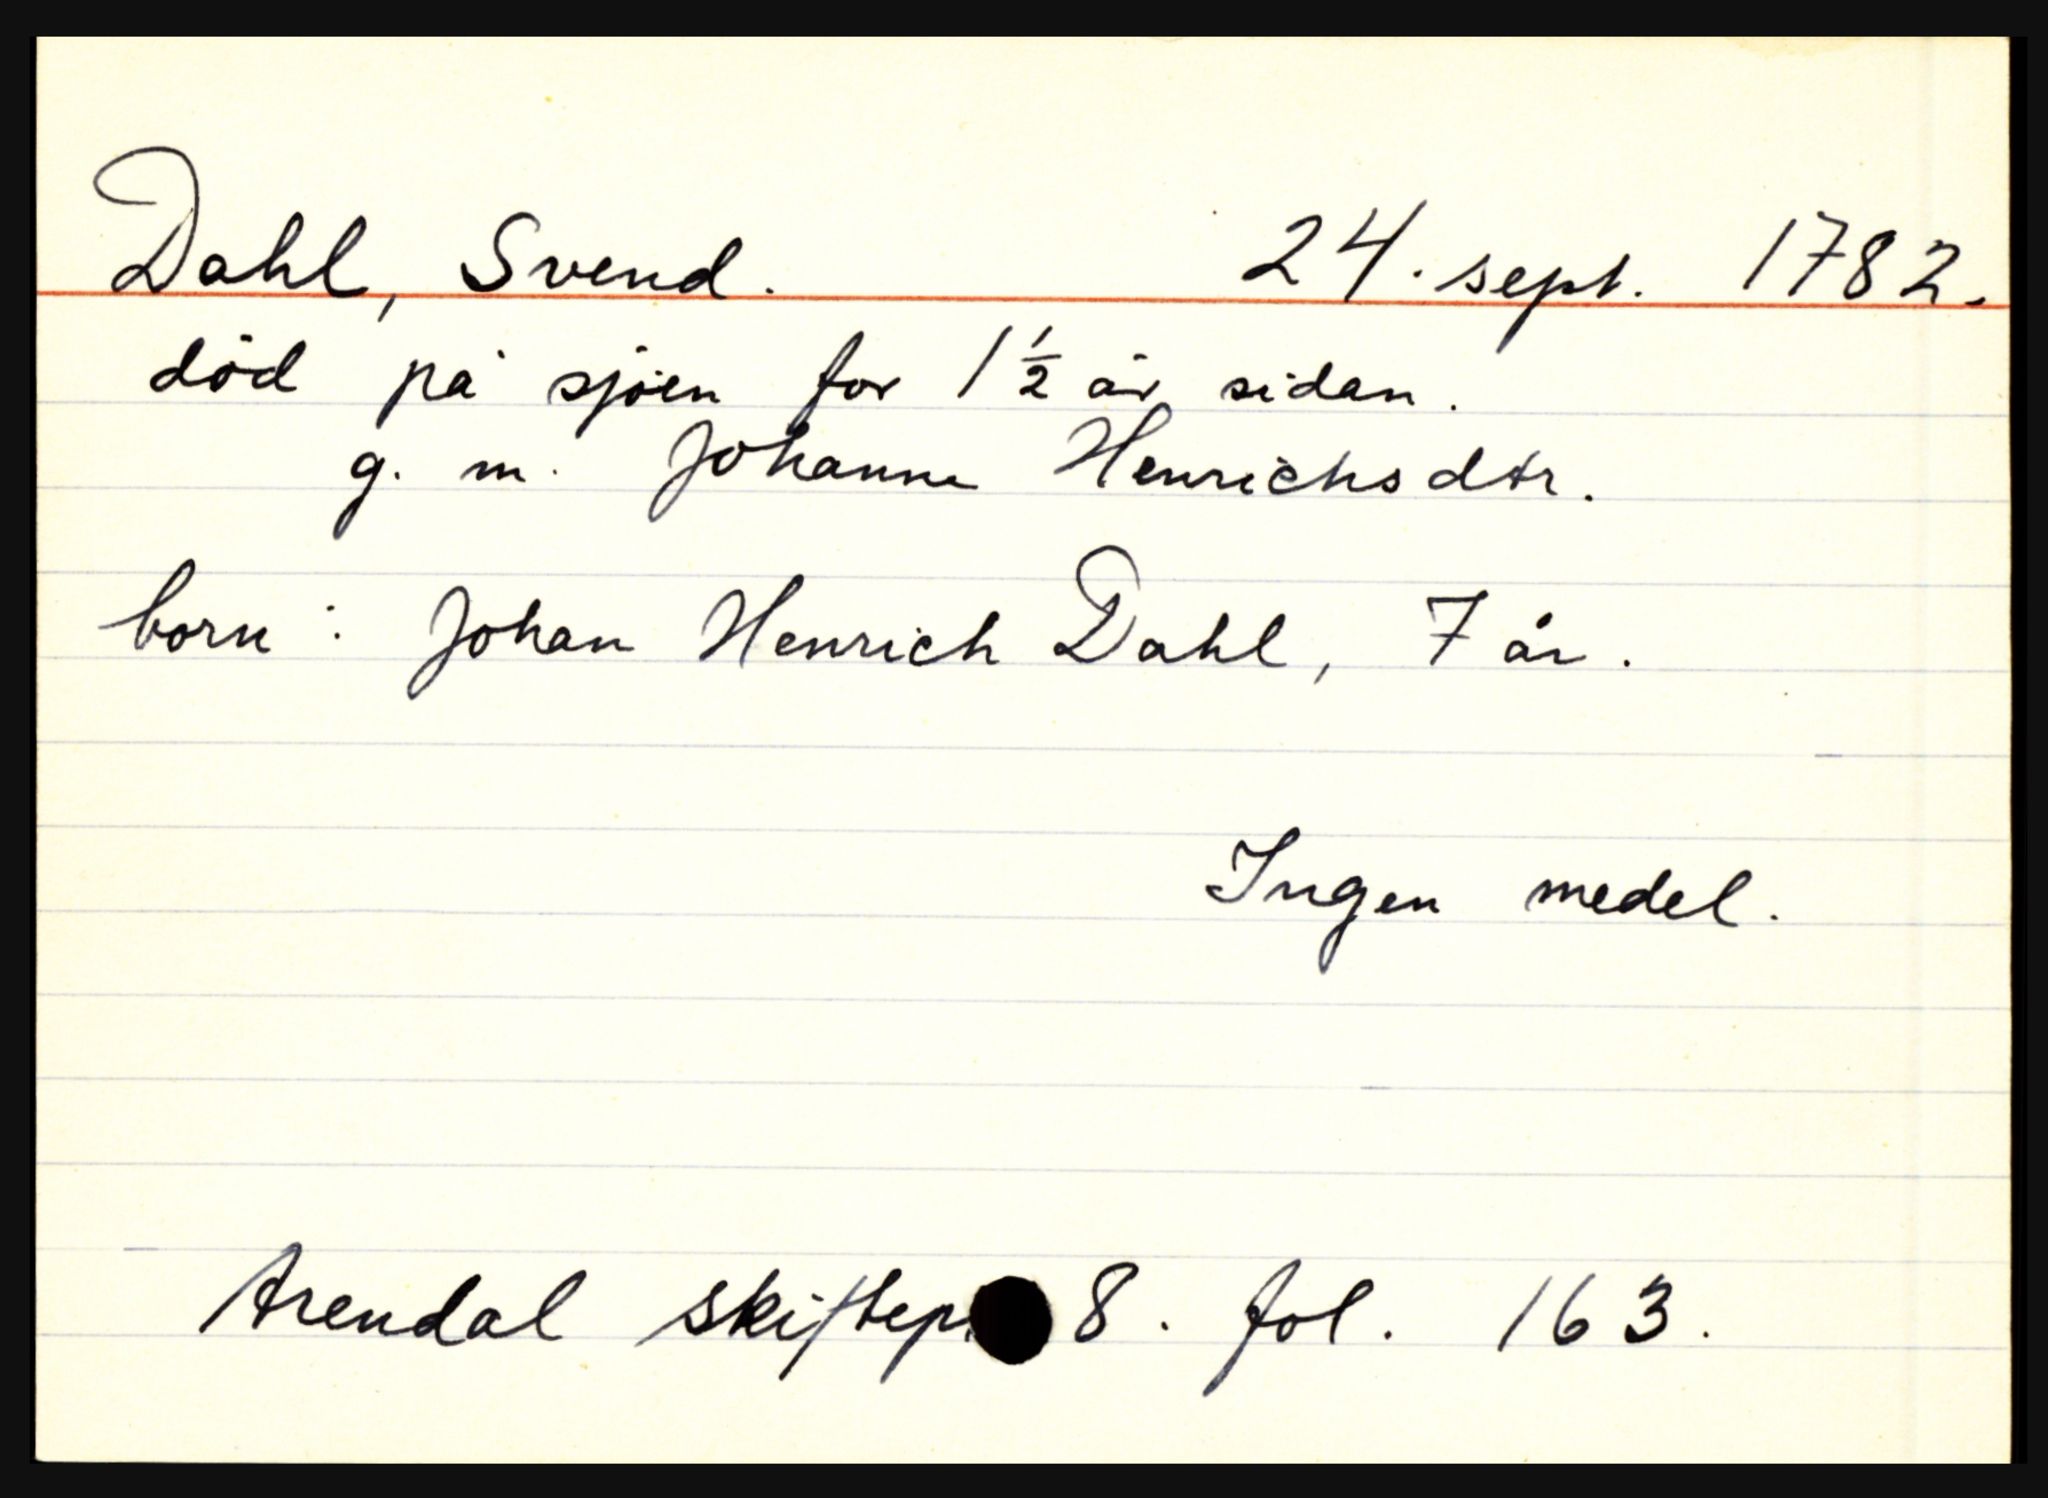 Dahl, Svend. 24. sept. 1782.
död på sjöen for 1 ½ år sidan.
g. m. Johanne Henrichsdtr.
born: Johan Henrich Dahl, 7 år.
Ingen medel.
Arendal skiftep. 8. fol. 163.